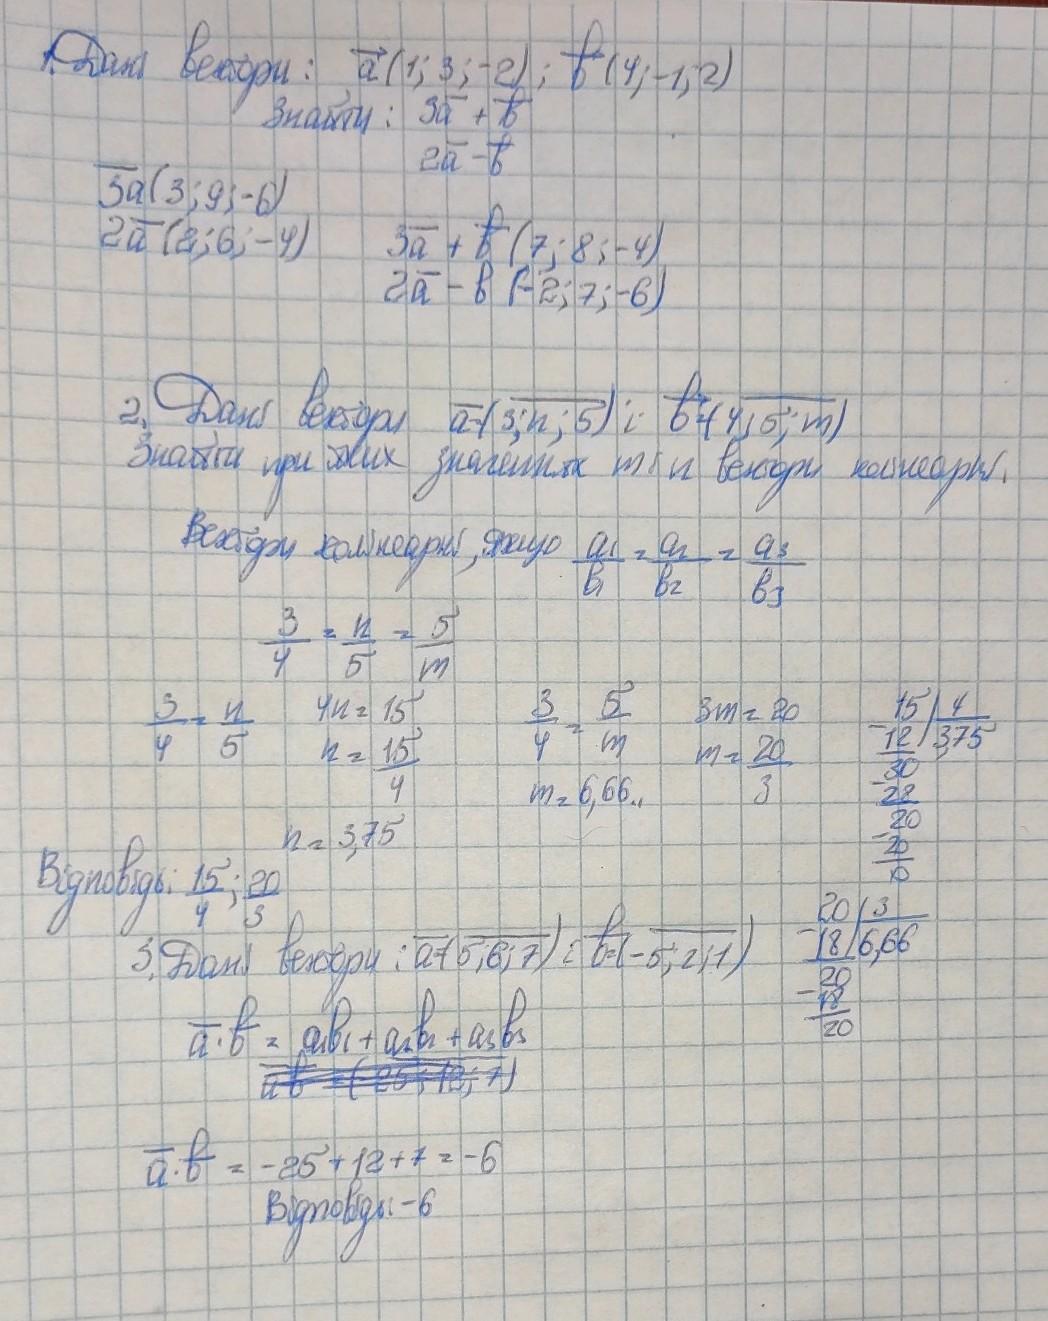 1. Дані вектори: a(1; 3; -2); b(4; -1; 2)
Знайти: 3a + b
2a - b
3a(3; 9; -6)
2a(2; 6; -4)
3a + b(7; 8; -4)
2a - b(-2; 7; -6)
2. Дані вектори a=(3; n; 5) і b=(4; 5; m)
Знайти при яких значеннях m і n вектори колінеарні.
Вектори колінеарні, якщо a1/b1 = a2/b2 = a3/b3
3/4 = n/5 = 5/m
3/4 = n/5 4n = 15 3/4 = 5/m 3m = 20
n = 15/4 m = 6,66.. m = 20/3
n = 3,75
15 | 4
-12 | 3,75
30
-28
20
-20
0
Відповідь: 15/4; 20/3
20 | 3
-18 | 6,66
20
-18
20
3. Дані вектори: a=(5; 6; 7) і b=(-5; 2; 1)
a·b = a1b1 + a2b2 + a3b3
a·b = -25 + 12 + 7 = -6
Відповідь: -6